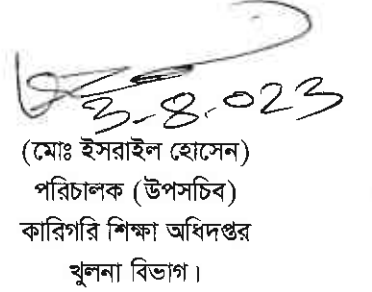 3-8-023
(মোঃ ইসরাইল হোসেন)
পরিচালক (উপসচিব)
কারিগরি শিক্ষা অধিদপ্তর
খুলনা বিভাগ।